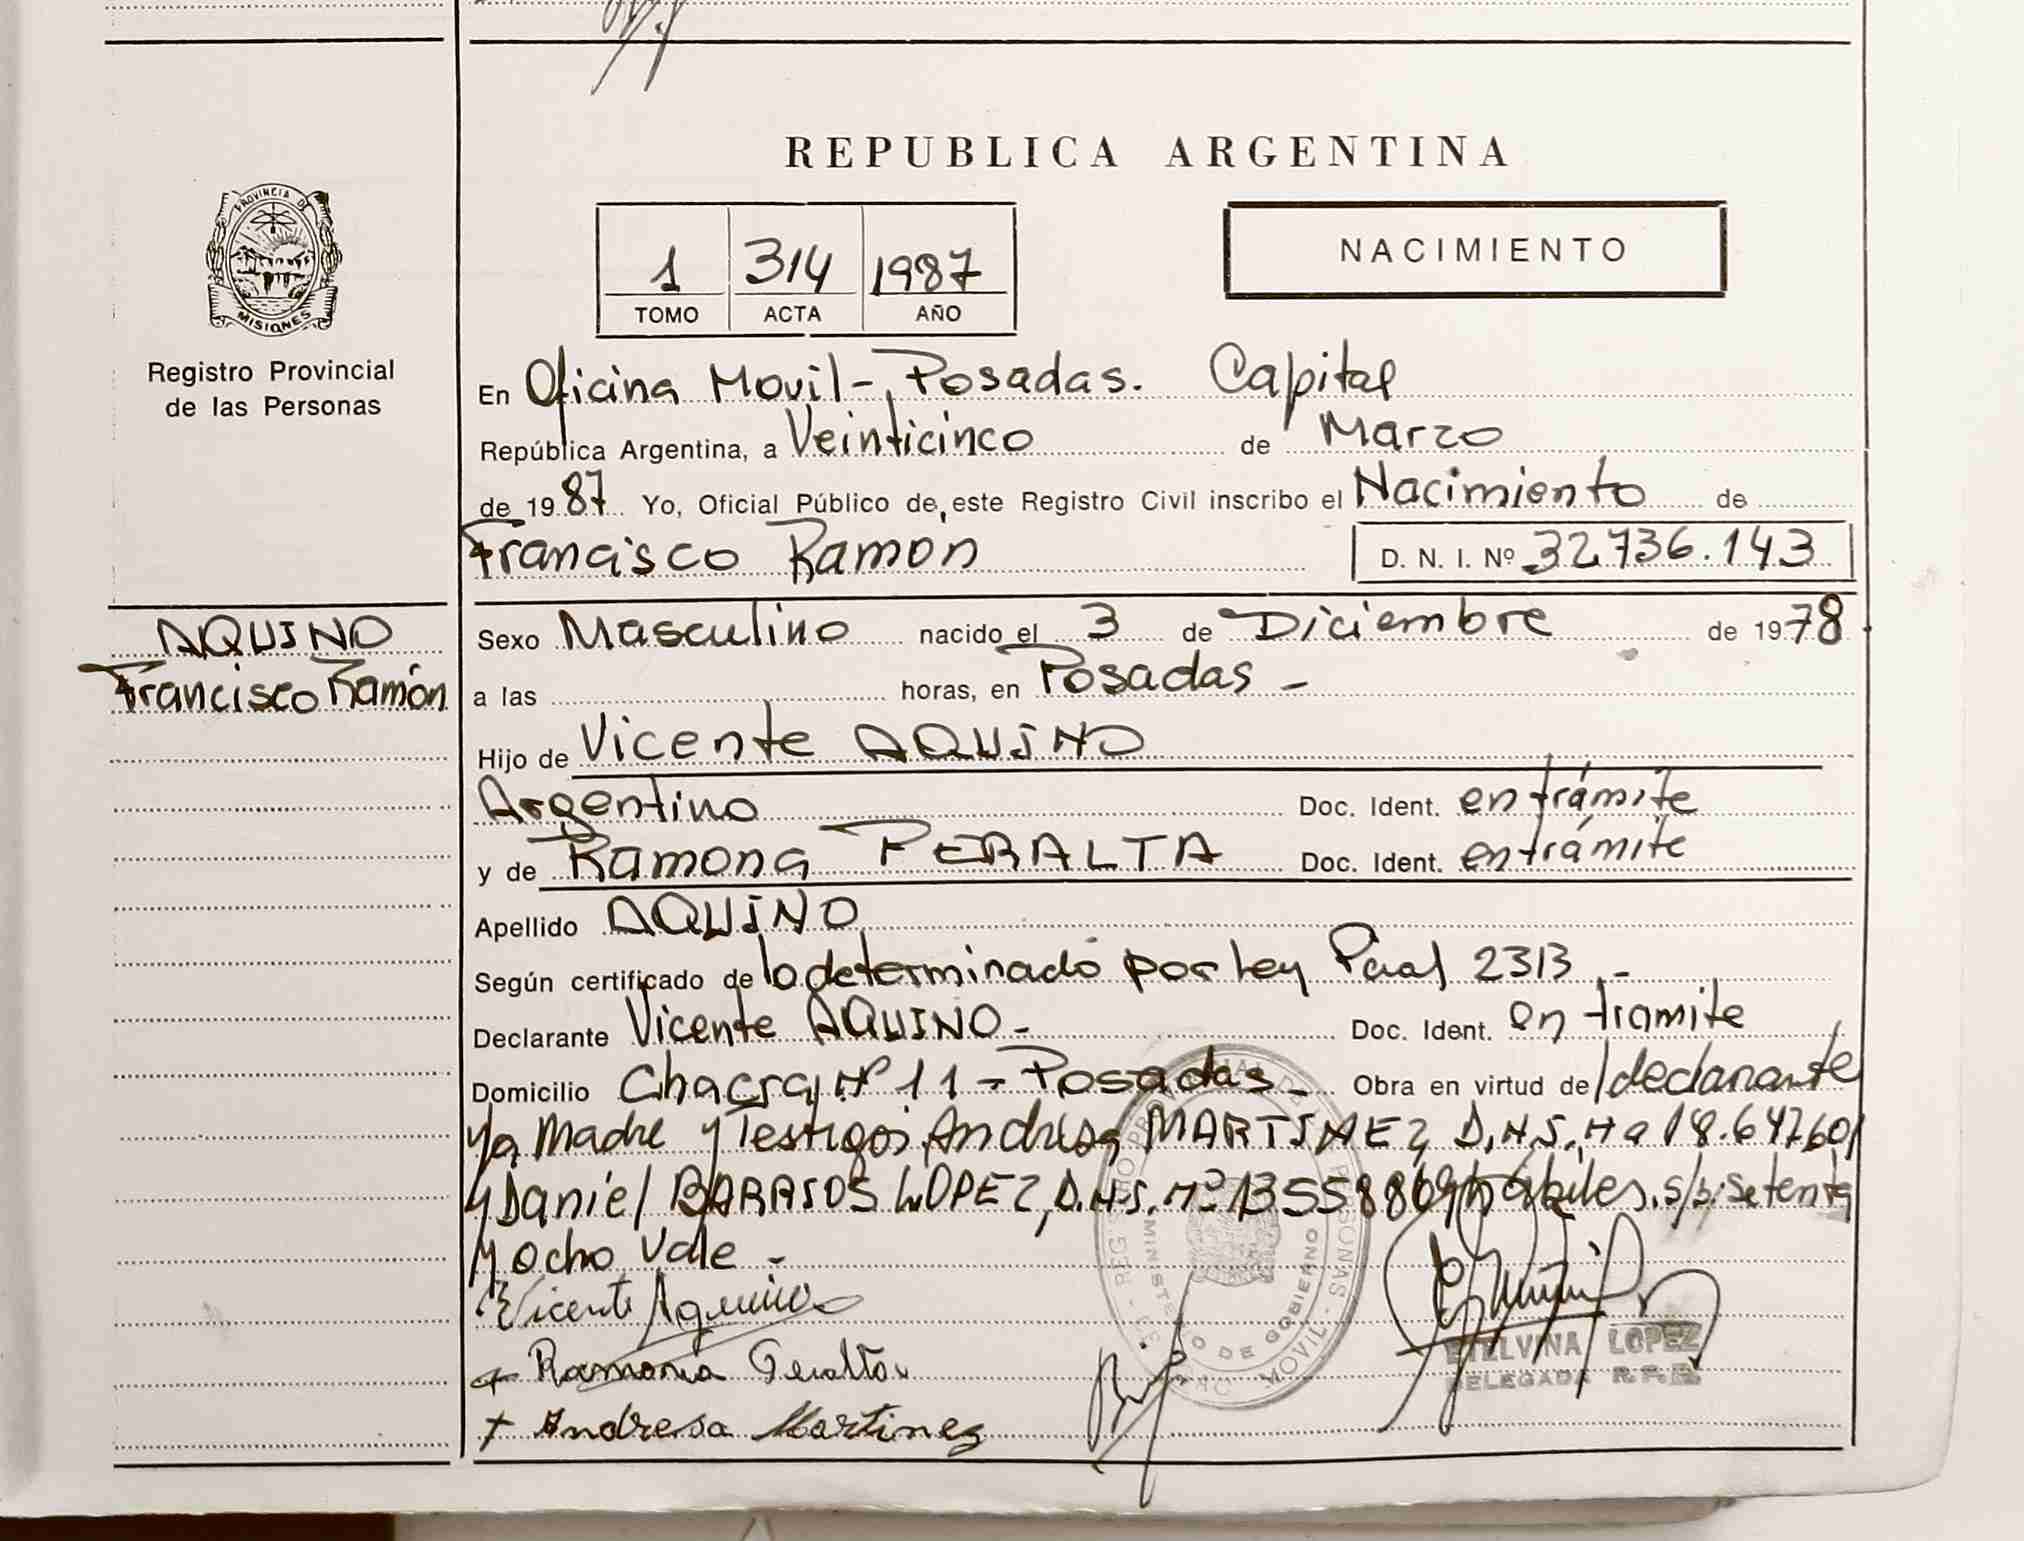 REPUBLICA ARGENTINA
PROVINCIA DE
MISIONES
Registro Provincial
de las Personas
1 314 1987
TOMO ACTA AÑO
NACIMIENTO
En Oficina Movil-Posadas. Capital
República Argentina, a Veinticinco de Marzo
de 1987 Yo, Oficial Público de este Registro Civil inscribo el Nacimiento de
Francisco Ramon D. N. I. Nº 32736.143
AQUINO
Francisco Ramón
Sexo Masculino nacido el 3 de Diciembre de 1978
a las horas, en Posadas -
Hijo de Vicente AQUINO
Argentino Doc. Ident. en trámite
y de Ramona PERALTA Doc. Ident. en trámite
Apellido AQUINO
Según certificado de lo determinado por Ley Pcial 2313 -
Declarante Vicente AQUINO - Doc. Ident. en tramite
Domicilio Chacra Nº 11 - Posadas - Obra en virtud de /declarante
y la Madre y Testigos Andresa MARTINEZ, D.N.I. Nº 18.647601
y Daniel BARRIOS LOPEZ, D.N.I. Nº 13558869 hábiles. s/p: setenta
y ocho Vale -
Vicente Aquino
+ Ramona Peralta
+ Andresa Martinez
ETELVINA LOPEZ
DELEGADA R.P.P.
REGISTRO PROVINCIAL DE PERSONAS - MOVIL
MINISTERIO DE GOBIERNO